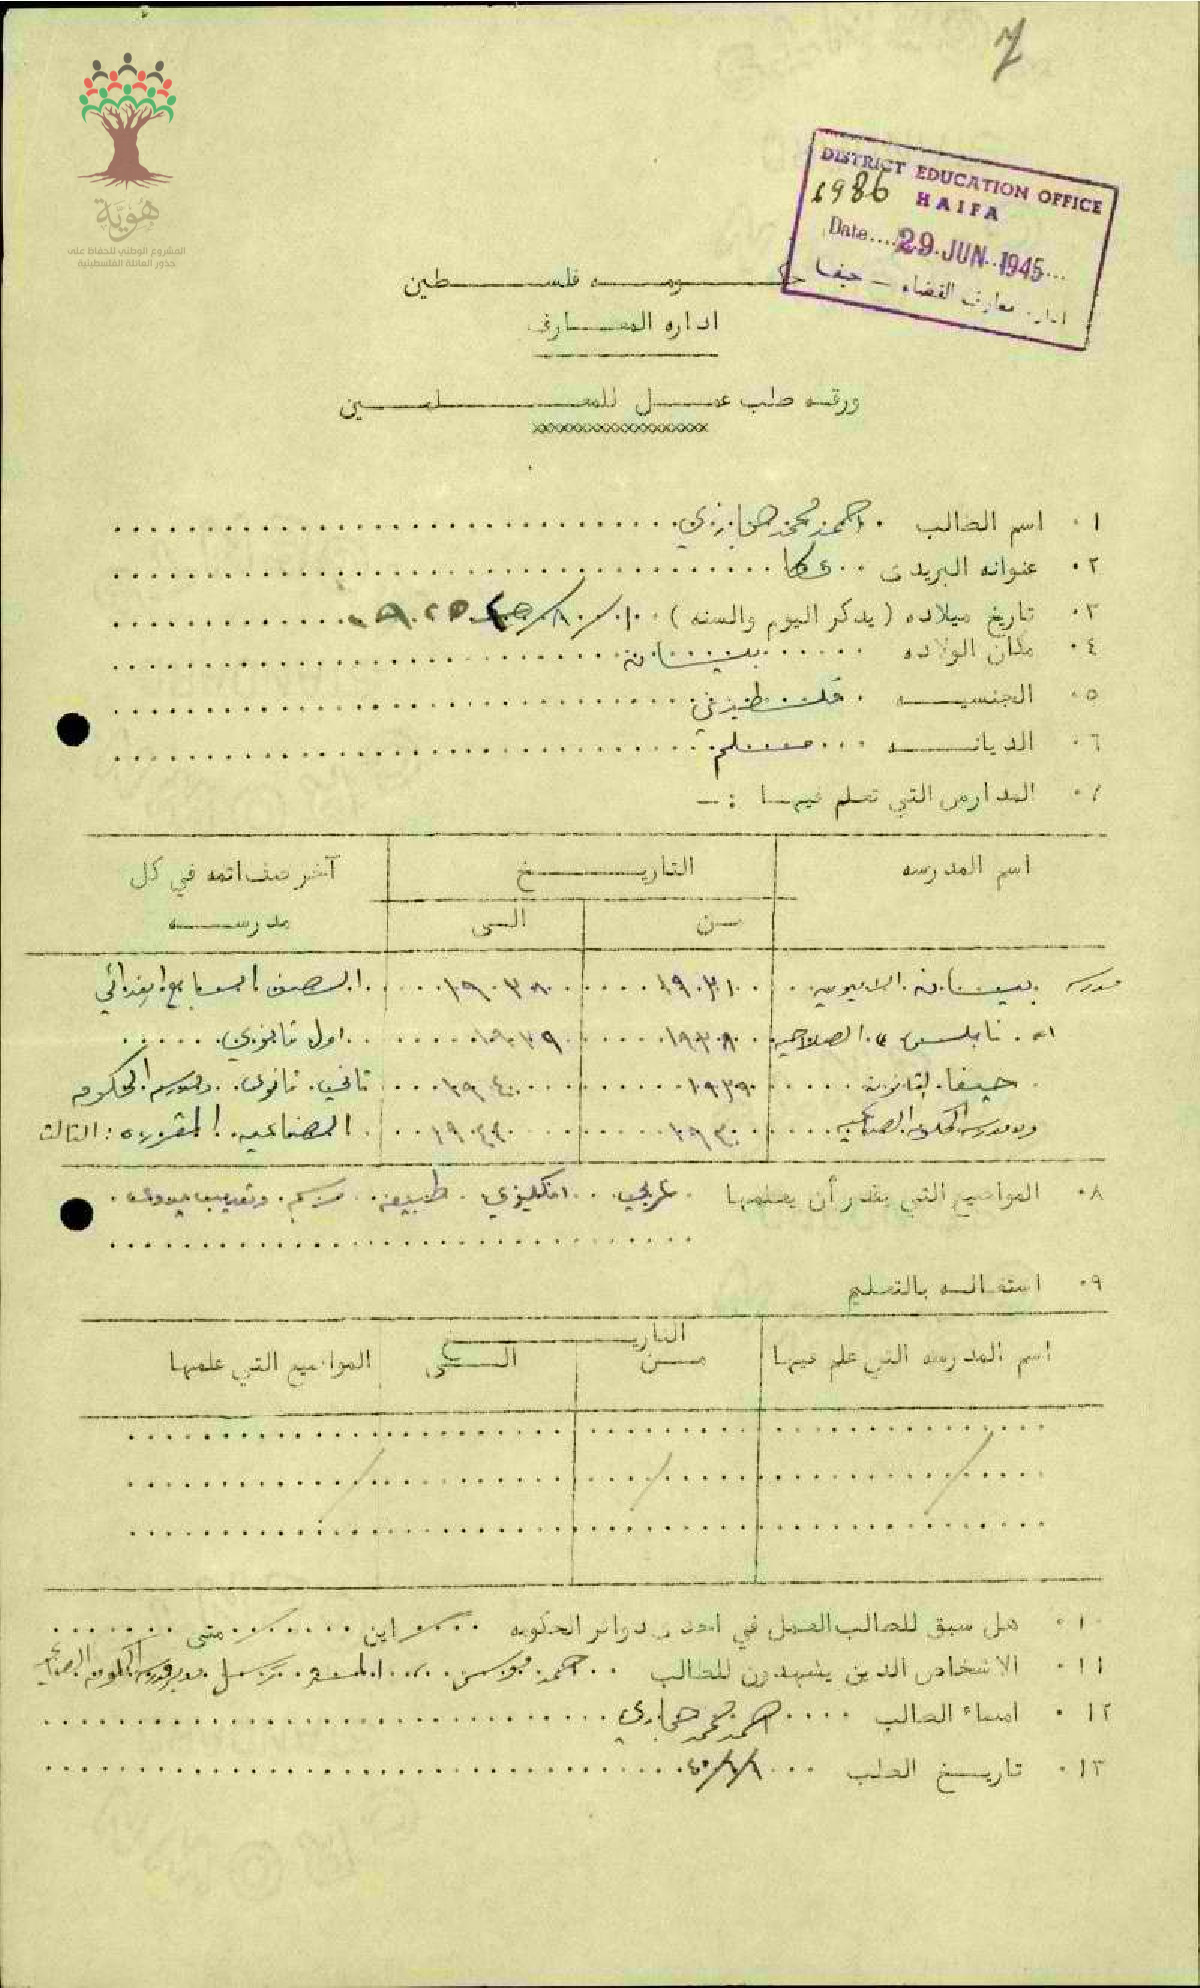 7
هَوِيَّة
المشروع الوطني للحفاظ على
جذور العائلة الفلسطينية
DISTRICT EDUCATION OFFICE
1986 HAIFA
Date.... 29 JUN 1945...
ادارة معارف القضاء — حيفا
حكومة فلسطين
اداره المعارف
ورقه طلب عمل للمعلمين
xxxxxxxxxxxxxxxxxx
١٠ اسم الطالب احمد محمد حجازي
٢٠ عنوانه البريدي عكا
٣٠ تاريخ ميلاده ( يذكر اليوم والسنه )
٤٠ مكان الولاده بيسان
٥٠ الجنسيه فلسطيني
٦٠ الديانه مسلم
٧٠ المدارس التي تعلم فيها : -
اسم المدرسه التاريخ آخر صف اتمه في كل
من الى مدرسه
مدرسه بيسان الاميريه ١٩٣١ ١٩٣٨ الصف السابع ابتدائي
نابلس الصلاحيه ١٩٣٨ ١٩٣٩ اول ثانوي
حيفا الثانويه ١٩٣٩ ١٩٤٠ ثاني ثانوي ومدرسه الحكومه
ومدرسه الحكومه الصناعيه ١٩٤٠ الصناعيه المقرره : الثالث
٨٠ المواضيع التي يقدر أن يعلمها عربي انكليزي طبيعه رسم
٩٠ اشتغاله بالتعليم
التاريخ
اسم المدرسه التي علم فيها من الى المواضيع التي علمها
١٠٠ هل سبق للطالب العمل في احدى دوائر الحكومه اين متى
١١٠ الاشخاص الذين يشهدون للطالب احمد المستر مدير مدرسه الحكومه الصناعيه
١٢٠ امضاء الطالب احمد محمد حجازي
١٣٠ تاريخ الطلب